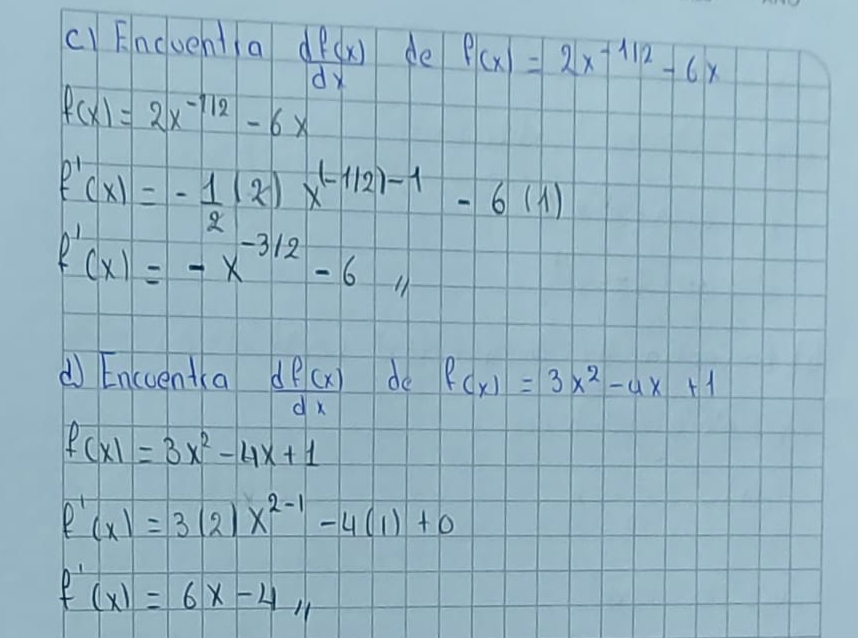 c) Encuentra df(x)/dx de f(x) = 2x^-1/2 - 6x
f(x) = 2x^-1/2 - 6x
f'(x) = - 1/2 (2) x^(-1/2)-1 - 6 (1)
f'(x) = - x^-3/2 - 6 //
d) Encuentra df(x)/dx de f(x) = 3x² - 4x + 1
f(x) = 3x² - 4x + 1
f'(x) = 3(2) x^2-1 - 4(1) + 0
f'(x) = 6x - 4 //